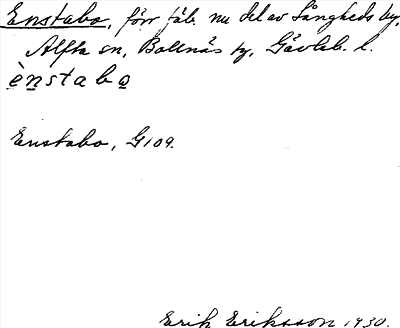 Enstabo, förr fäb. nu del av Långheds by,
Alfta sn, Bollnäs tg, Gävleb. l.
ènstabo
Enstabo, G109.
Erik Eriksson 1930.